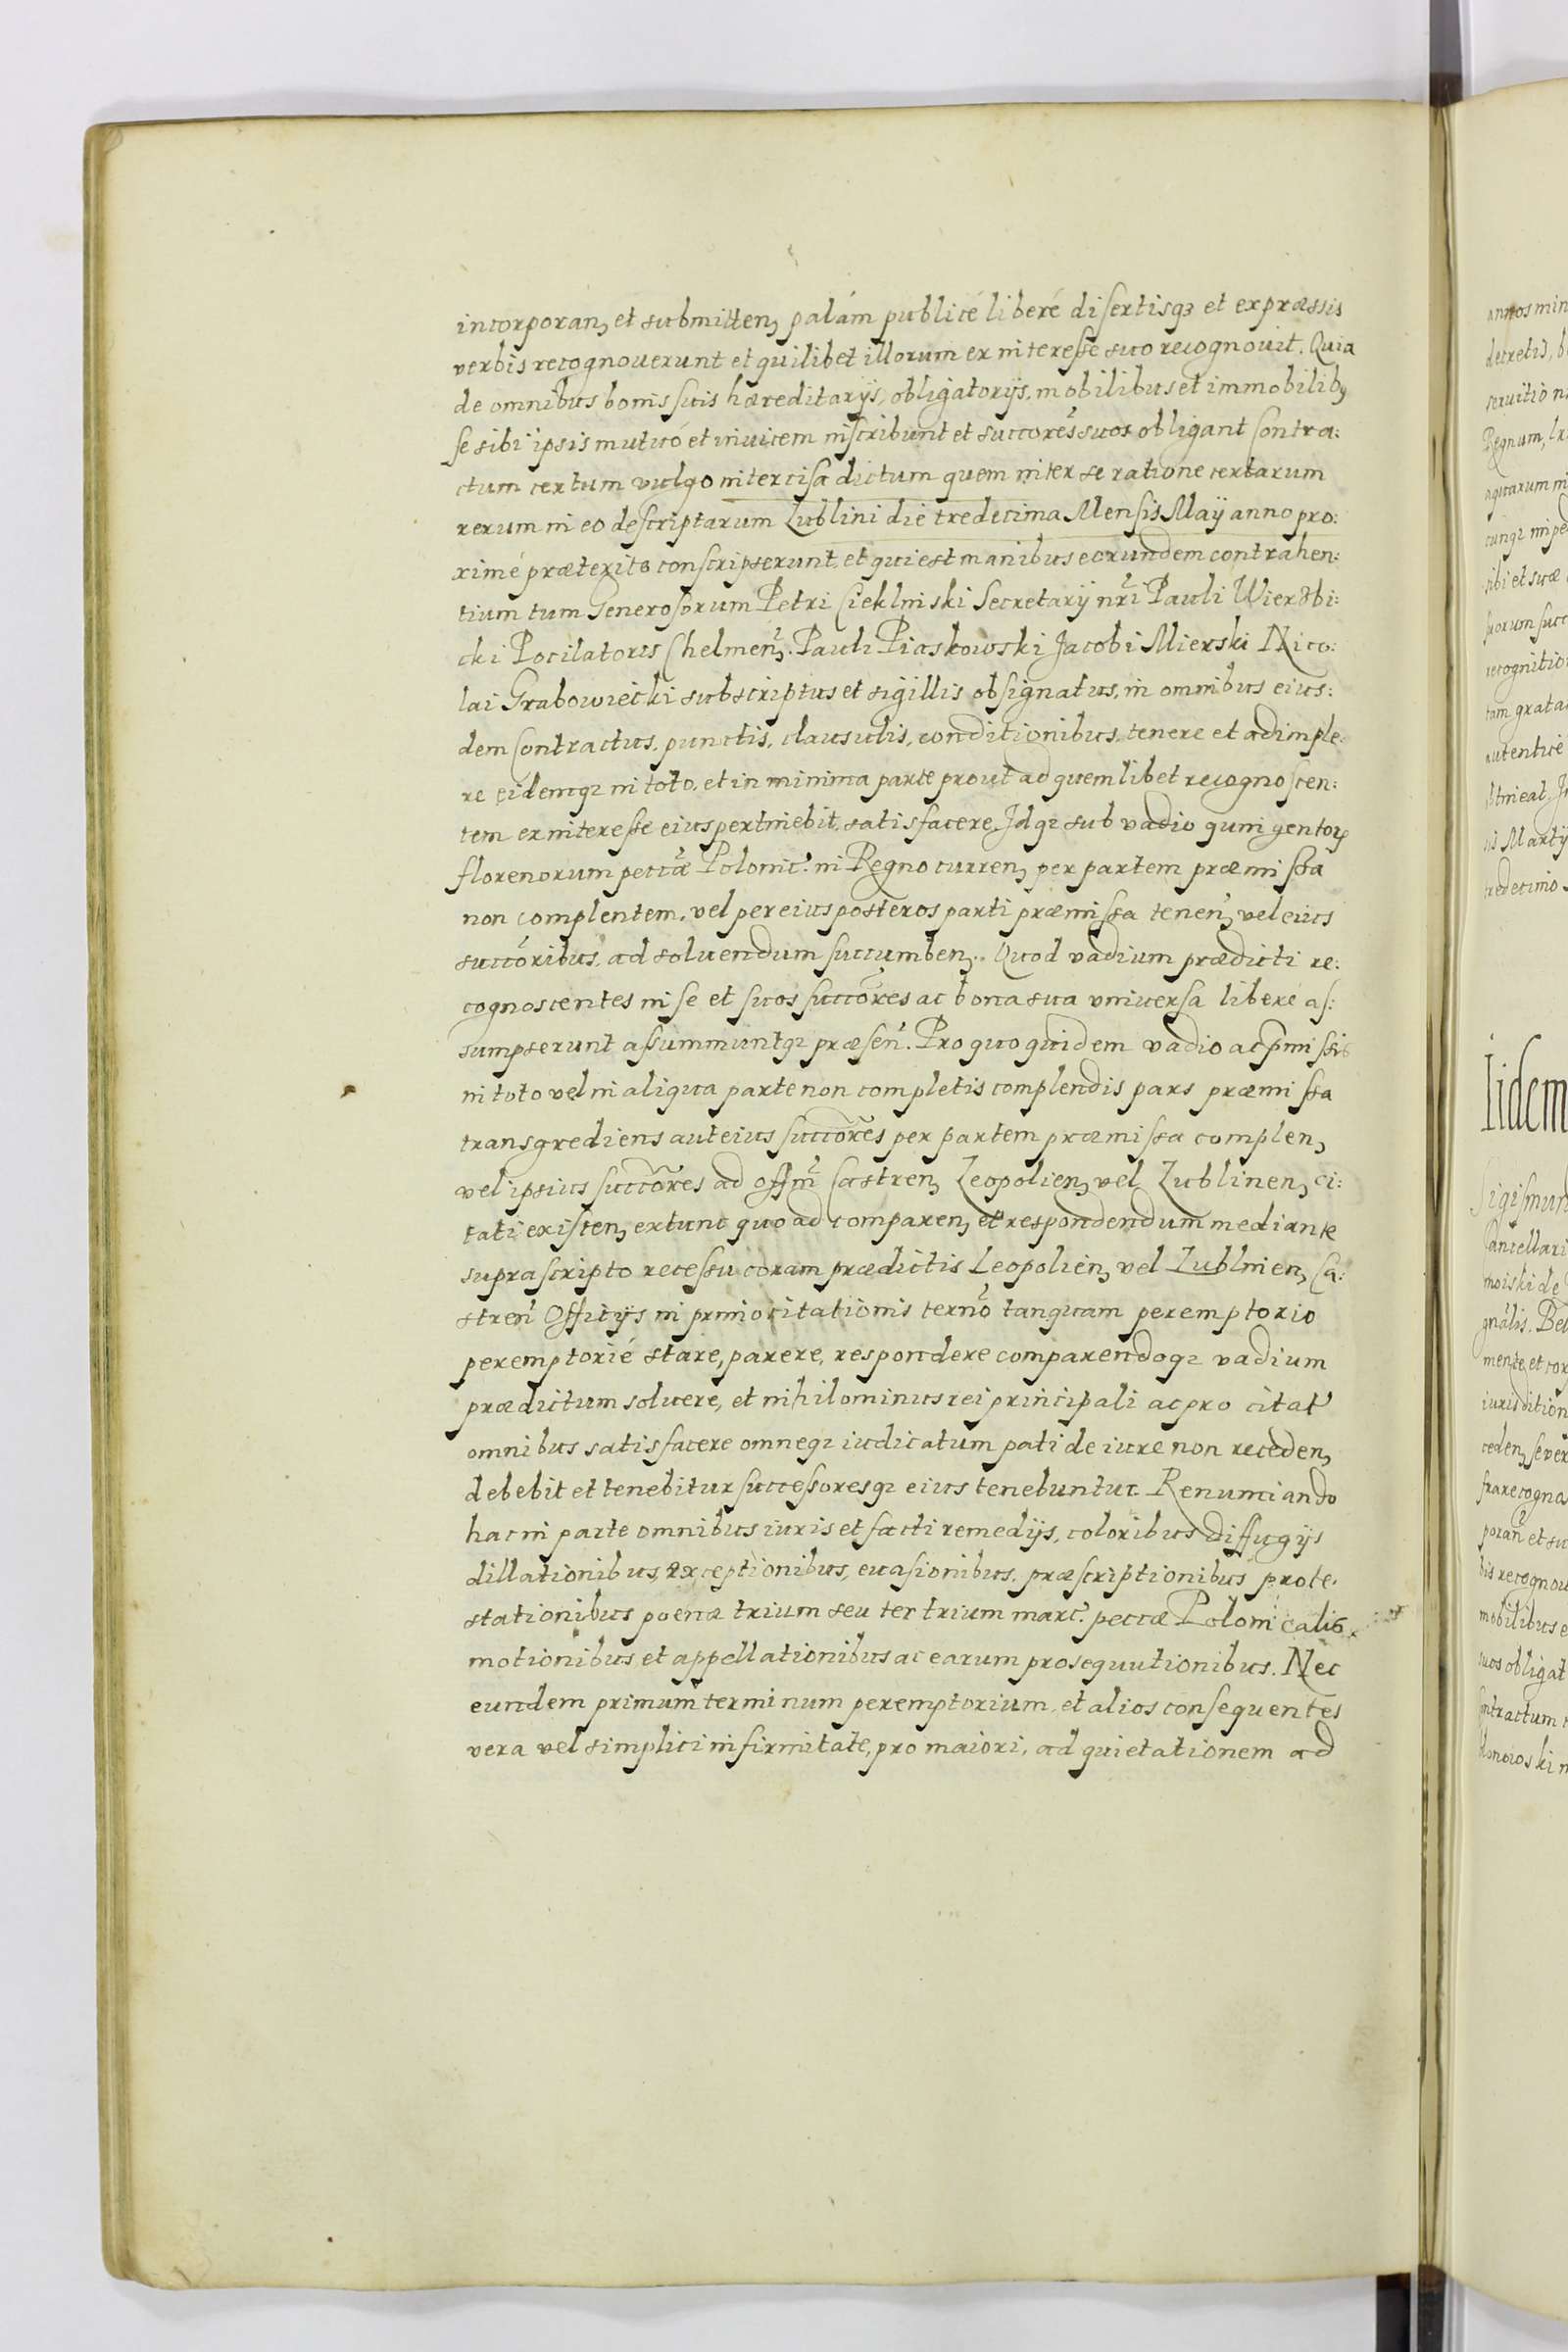 incorporan, et submitten, palám publicé liberé disertisq3 et expræssis
verbis recognouerunt et quilibet illorum ex interesse suo recognouit. Quia
de omnibus bonis suis hæreditarijs, obligatorijs, mobilibus et immobilib9
se sibi ipsis mutuó et inuicem inscribunt et succores suos obligant Contra:
ctum certum vulgo intercisa dictum quem inter se ratione certarum
rerum in eo descriptarum Lublini die tredecima Mensis Maÿ anno pro:
ximé præterito conscripserunt, et qui est manibus eorundem contrahen:
tium tum Generosorum Petri Cieklinski Secretarij nri Pauli Wierzbi:
cki Pocilatoris Chelmen. Pauli Piaskowski Jacobi Mierski Nico:
lai Grabowiecki subscriptus et sigillis obsignatus, in omnibus eius:
dem Contractus, punctis, clausulis, conditionibus, tenere et adimple:
re eidemq3 in toto, et in minima parte prout ad quemlibet recognoscen:
tem ex interesse eius pertinebit, satisfacere. Idq3 sub vadio quingentor
florenorum peccæ Polonic. in Regno curren, per partem præmissa
non complentem, vel per eius posteros parti præmissa tenen, vel eius
succoribus, ad soluendum succumben,. Quod vadium prædicti re:
cognoscentes in se et suos succores ac bona sua vniuersa liberé as:
sumpserunt assummuntq3 præsen. Pro quo quidem vadio ac pmissis
in toto vel in aliqua parte non completis complendis pars præmissa
transgrediens aut eius succores per partem præmissa complen,
vel ipsius succores ad offm Castren, Leopolien, vel Lublinen, ci:
tati existen, extunc quo ad comparen, et respondendum mediante
suprascripto recessu coram prædictis Leopolien, vel Lublinen, Ca:
stren Officijs in primo citationis termo tanquam peremptorio
peremptorié stare, parere, respondere comparendoq3 vadium
prædictum soluere, et nihilominus rei principali ac pro citat
omnibus satisfacere omneq3 iudicatum pati de iure non receden,
debebit et tenebitur successoresq3 eius tenebuntur. Renunciando
hac in parte omnibus iuris et facti remedijs, coloribus diffugijs
dillationibus, exceptionibus, euasionibus, præscriptionibus prote:
stationibus poenæ trium seu ter trium marc. peccæ Polonicalis
motionibus et appellationibus ac earum prosequutionibus. Nec
eundem primum terminum peremptorium, et alios consequentes
vera vel simplici infirmitate, pro maiori, ad quietationem ad
Iidem